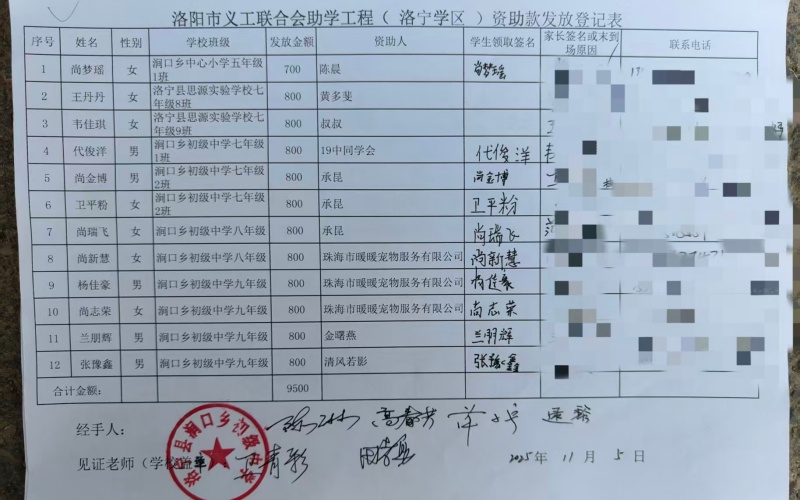 洛阳市义工联合会助学工程（ 洛宁学区 ）资助款发放登记表
序号 姓名 性别 学校班级 发放金额 资助人 学生领取签名 家长签名或未到场原因 联系电话
1 尚梦瑶 女 涧口乡中心小学五年级1班 700 陈晨 尚梦瑶
2 王丹丹 女 洛宁县思源实验学校七年级8班 800 黄多斐
3 韦佳琪 女 洛宁县思源实验学校七年级9班 800 叔叔
4 代俊洋 男 涧口乡初级中学七年级1班 800 19中同学会 代俊洋
5 尚金博 男 涧口乡初级中学七年级2班 800 承昆 尚金博
6 卫平粉 女 涧口乡初级中学七年级2班 800 承昆 卫平粉
7 尚瑞飞 女 涧口乡初级中学八年级 800 承昆 尚瑞飞
8 尚新慧 女 涧口乡初级中学八年级 800 珠海市暖暖宠物服务有限公司 尚新慧
9 杨佳豪 男 涧口乡初级中学九年级 800 珠海市暖暖宠物服务有限公司 杨佳豪
10 尚志荣 女 涧口乡初级中学九年级 800 珠海市暖暖宠物服务有限公司 尚志荣
11 兰朋辉 男 涧口乡初级中学九年级 800 金曙燕 兰朋辉
12 张豫鑫 男 涧口乡初级中学九年级 800 清风若影 张豫鑫
合计金额： 9500
经手人：
见证老师（学校盖章
洛宁县涧口乡初级中学
2025年 11月 5日